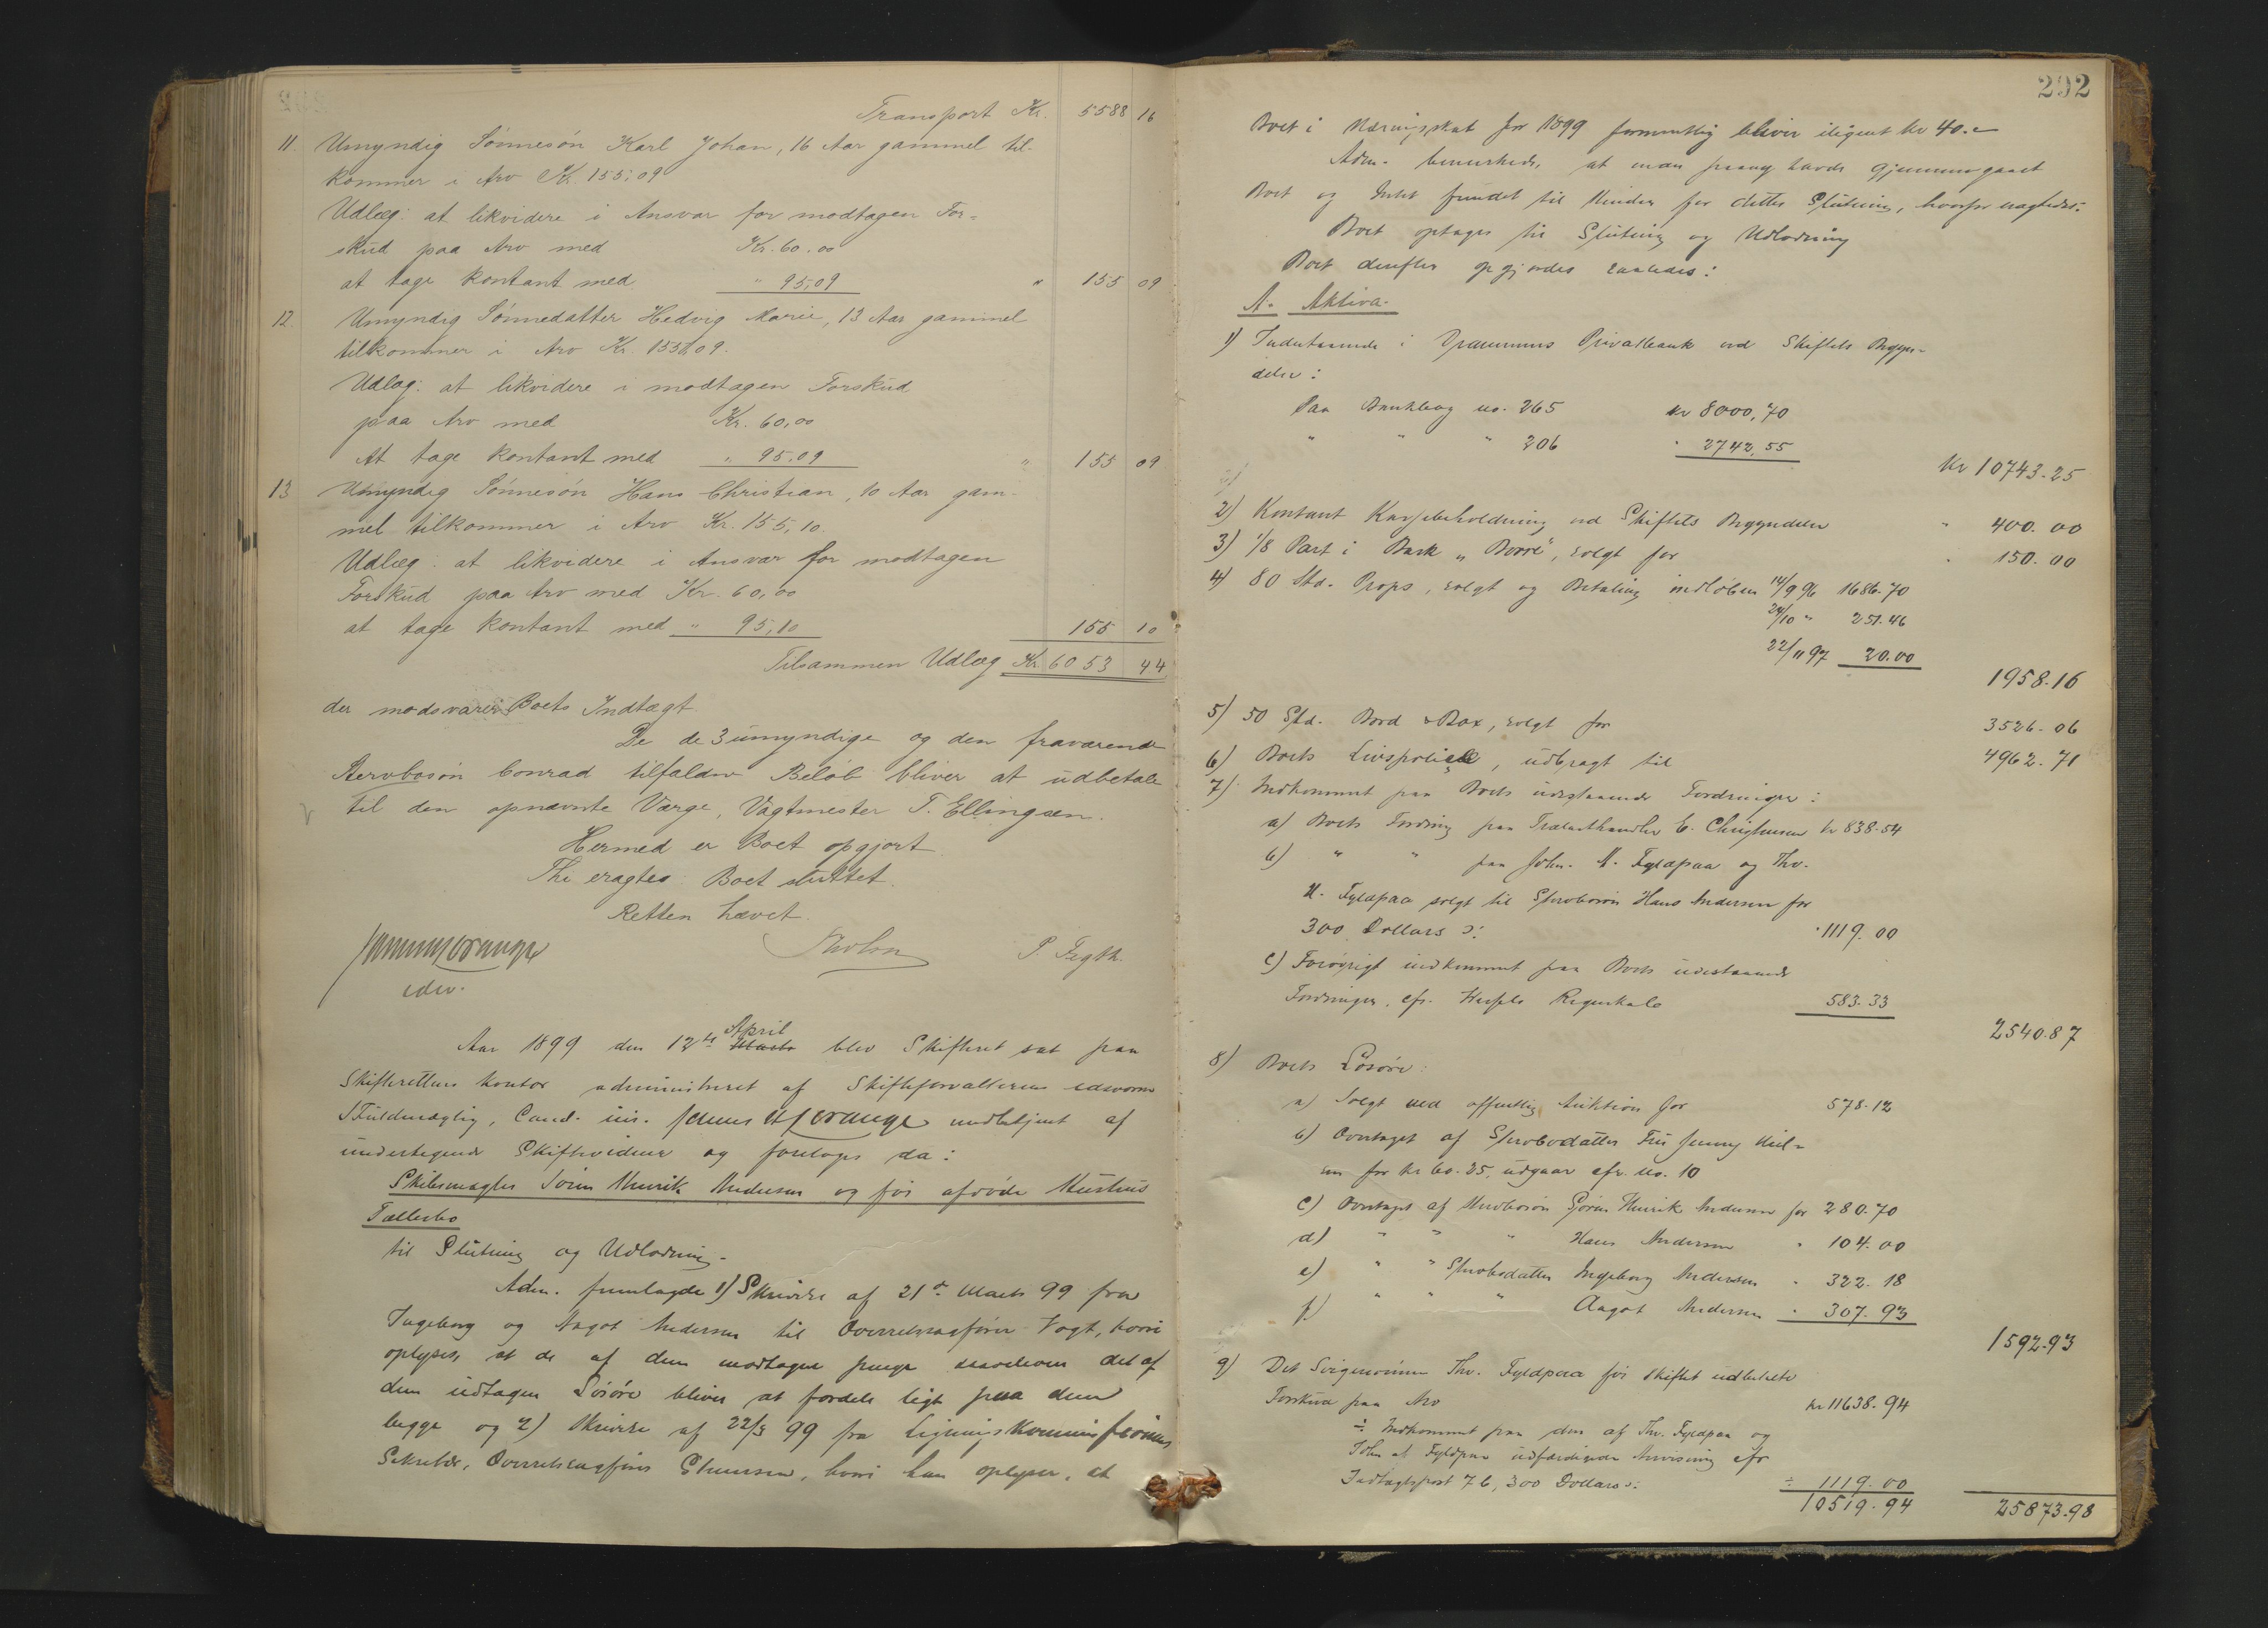 Transport Kr. 5588 16
11. Umyndig Sønnesøn Karl Johan, 16 Aar gammel til-
kommer i Arv Kr. 155,09
Udlæg: at likvidere i Ansvar for modtagen For-
skud paa Arv med Kr. 60.00
at tage kontant med " 95,09 " 155 09
12. Umyndig Sønnedatter Hedvig Marie, 13 Aar gammel
tilkommer i Arv Kr. 155,09.
Udlæg: at likvidere i modtagen Forskud
paa Arv med Kr. 60,00
At tage kontant med " 95.09 " 155 09
13 Umyndig Sønnesøn Hans Christian, 10 Aar gam-
mel tilkommer i Arv Kr. 155,10.
Udlæg: at likvidere i Ansvar for modtagen
Forskud paa Arv med Kr. 60,00
at tage kontant med " 95,10 155 10
Tilsammen Udlæg Kr. 6053 44
der modsvarer Boets Indtægt
De de 3 umyndige og den fraværende
Stervbosøn Conrad tilfaldne Beløb bliver at udbetale
til den opnævnte Værge, Vagtmester T. Ellingsen.
Hermed er Boet opgjort
Thi eragtes Boet sluttet.
Retten hævet.
P. Fegth.
edsv.
Aar 1899 den 12te Marts April blev Skifteret sat paa
Skifterettens Kontor administreret af Skifteforvalterens edsvorne
Fuldmægtig, Cand. jur. medbetjent af
undertegnede Skiftevidner og foretoges da:
Skibsmægler Søren Henrik Andersen og før afdøde Hustrus
Fællesbo
til Slutning og Udlodning.
Adm. fremlagde 1) Skrivelse af 21de Marts 99 fra
Ingeborg og Aagot Andersen til Overretssagfører Vogt, hvori
oplyses, at de af dem modtagne Penge saavelsom det af
dem udtagne Løsøre bliver at fordele ligt paa dem
begge og 2) Skrivelse af 22/3 99 fra Ligningskommissionens
Sekretær, Overretssagfører, hvori han oplyser, at
292
Boet i Næringsskat for 1899 formentlig bliver ilignet kr 40.-
Adm. bemærkede, at man havde gjennemgaaet
Boet og Intet fundet til Hinder for dettes Slutning, hvorfor eragtedes:
Boet optages til Slutning og Udlodning
Boet derefter opgjordes saaledes:
A. Aktiva.
1) Indestaaende i Drammens Privatbank ved Skiftets Begyn-
delse:
Paa Bankbog no. 265 kr 8000,70
" " " 206 " 2742,55
Kr 10743.25
2) Kontant Kassebeholdning ved Skiftets Begyndelse " 400.00
3) 1/8 Part i Bark "Borre", solgt for " 150.00
4) 80 Std. Props, solgt og Betaling indløben 14/9 96 1686.70
24/10 " 251.46
22/11 97 20.00
1958.16
5) 50 Std. Bord & Box, solgt for 3526.06
6) Boets Livspolice, udbragt til 4962.71
7) Indkommet paa Boets udestaaende Fordringer:
a) Boets Fordring paa Trælasthandler E. Christensen kr 838.54
b) " " paa John. A. Fyldpaa og Thv.
A. Fyldpaa solgt til Stervbosøn Hans Andersen for
300 Dollars ɔ: " 1119.00
c) Forøvrigt indkommet paa Boets udestaaende
Fordringer, cfr. Regnskab 583.33
2540.87
8) Boets Løsøre:
a) Solgt ved offentlig Auktion for 578.12
b) Overtaget af Stervbodatter Fru Jenny Niel-
sen for kr 60.25, udgaar cfr. no. 10
c) Overtaget af Stervbosøn Søren Henrik Andersen for 280.70
d) " " " Hans Andersen " 104.00
e) " " Stervbodatter Ingeborg Andersen " 322.18
f) " " " Aagot Andersen " 307.93
1592.93
9) Det Svigersønnen Thv. Fyldpaa før Skiftet udbetalte
Forskud paa Arv kr 11638.94
÷ Indkommet paa den af Thv. Fyldpaa og
John A. Fyldpaa udfærdigede Anvisning cfr
Indtægtspost 7 b, 300 Dollars ɔ: ÷ 1119.00
10519.94 25873.98